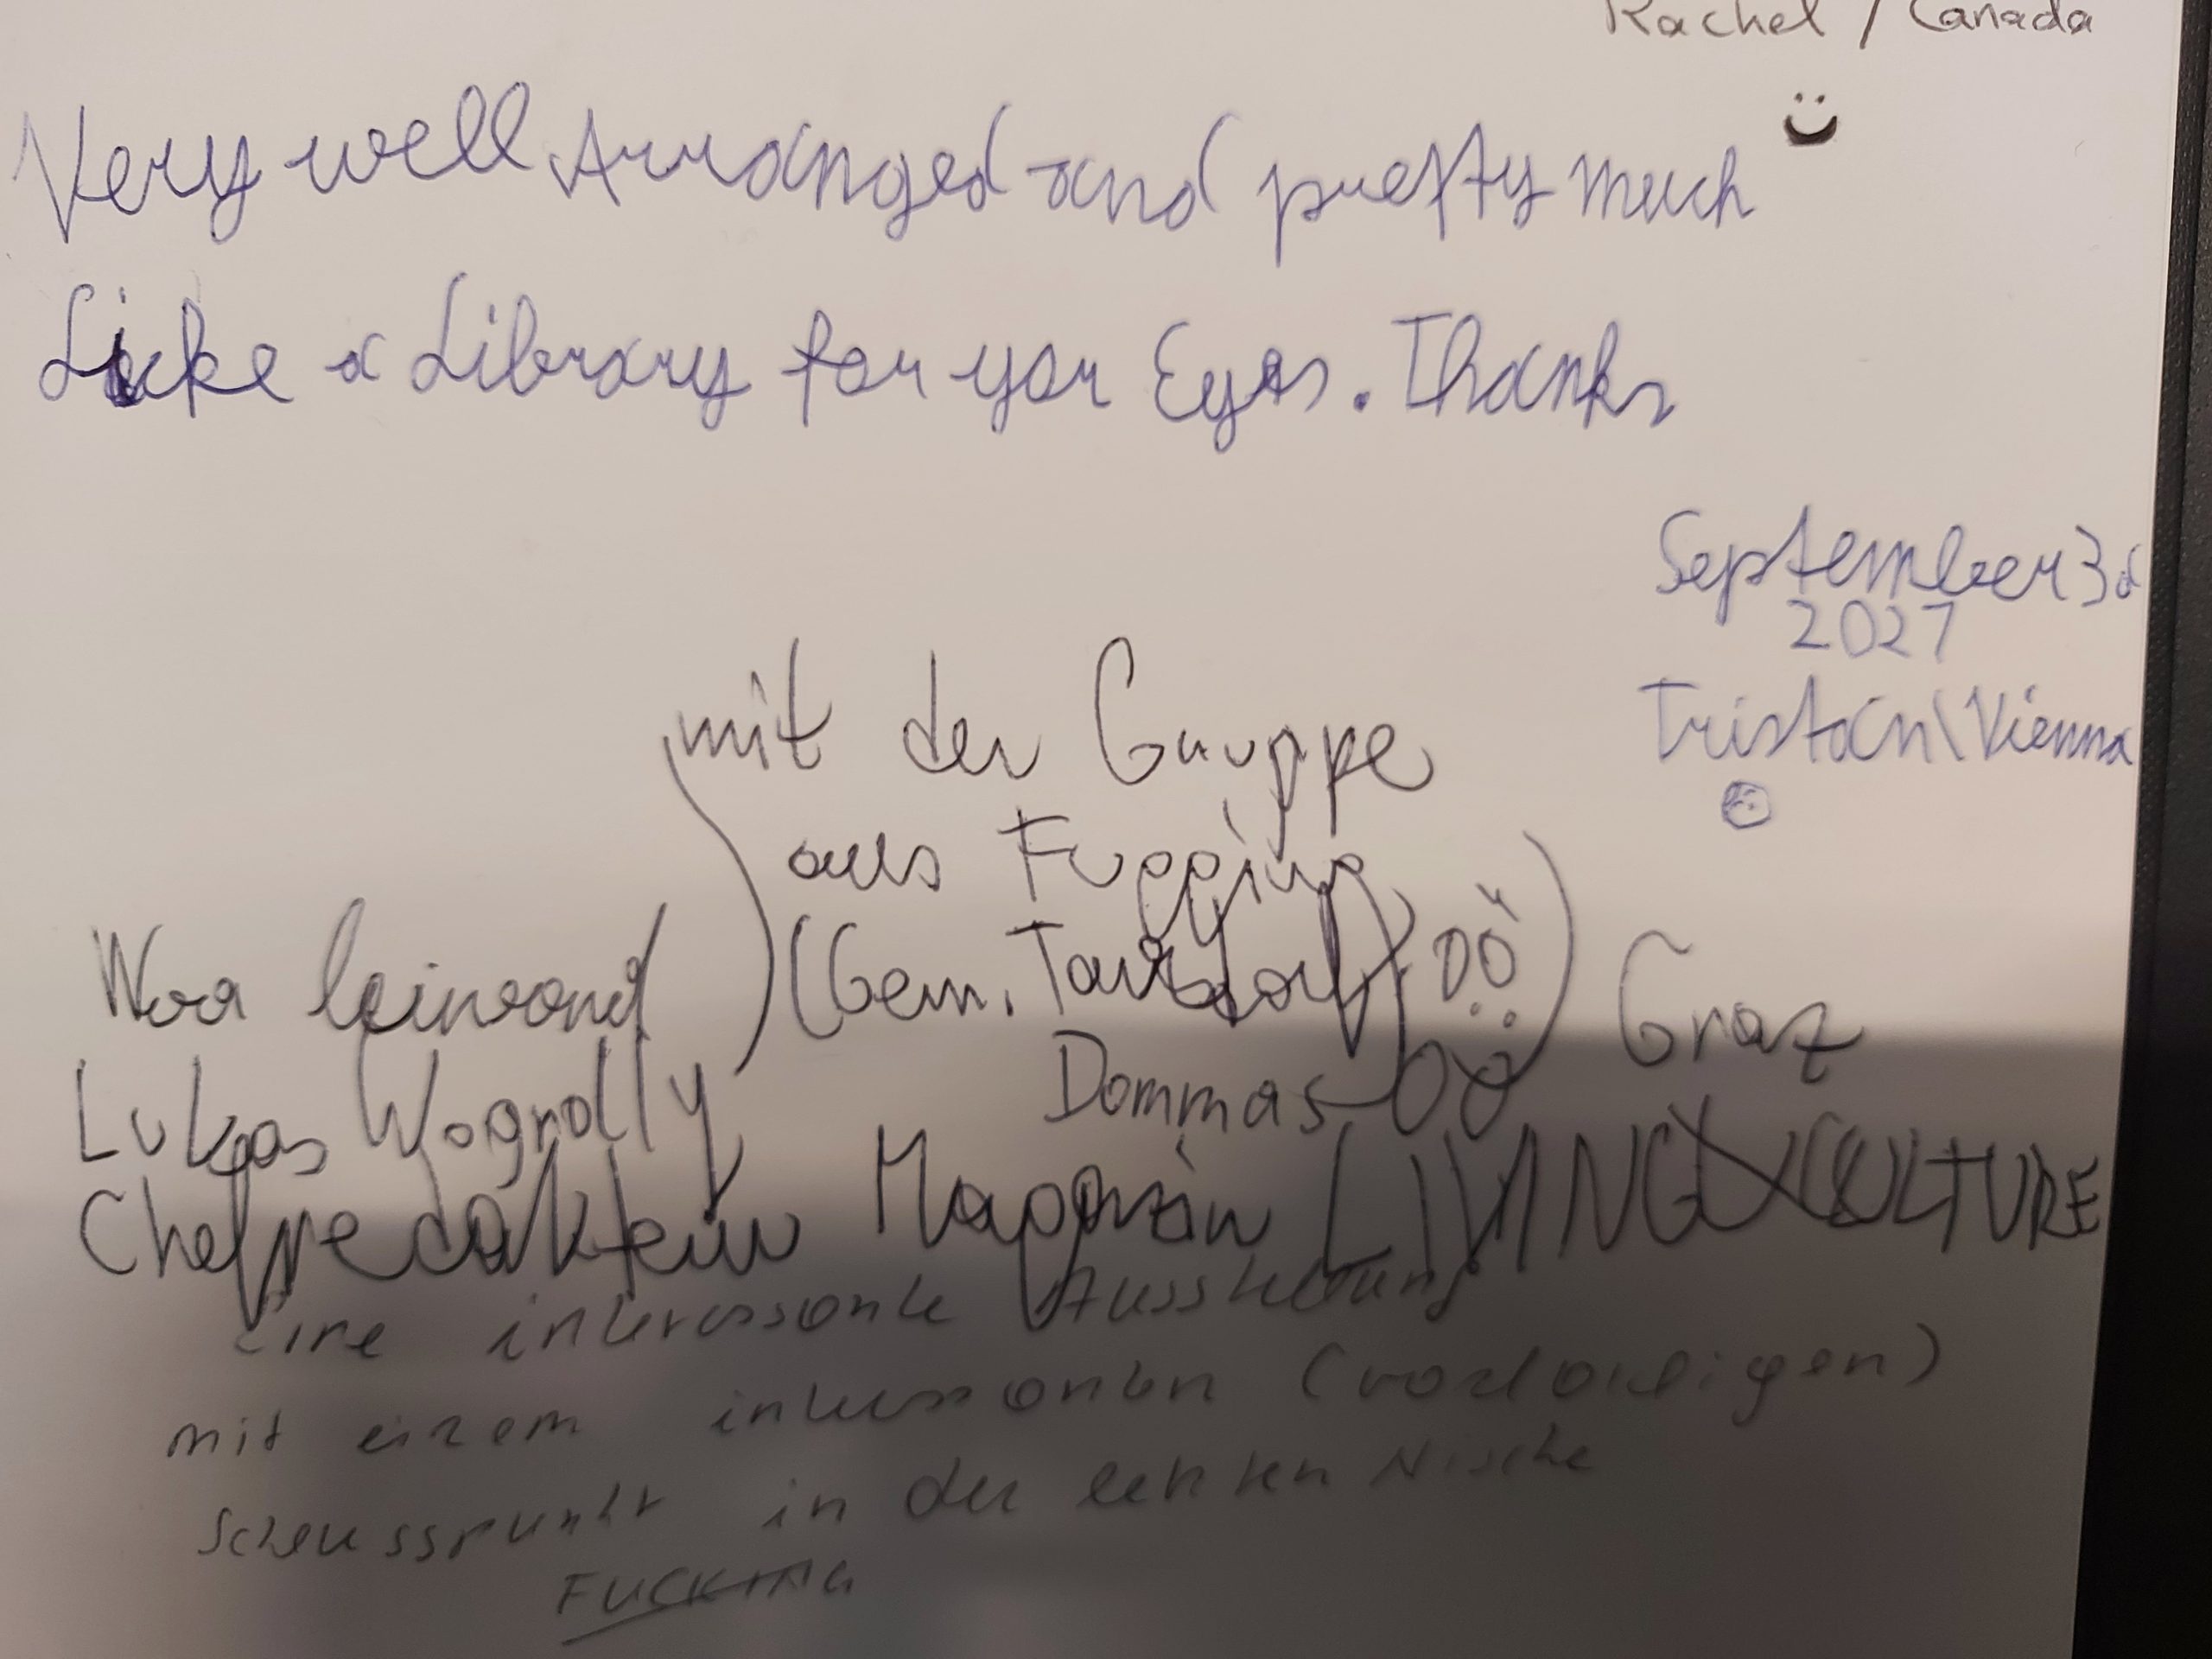 Rachel / Canada
Very well Arranged and pretty much
Like a Library for yor Eyes. Thanks
September 3d
2027
Tristan\Vienna
mit der Gruppe
aus Fugging
(Gem. Tarsdorf, OÖ)
Woa leinwand
Graz
Dommas
Lukas Wogrolly
Chefredakteur Magazin LIVING CULTURE
Eine interessante Ausstellung
mit einem interessanten (vorläufigen)
Schlusspunkt in der letzten Nische
FUCKING